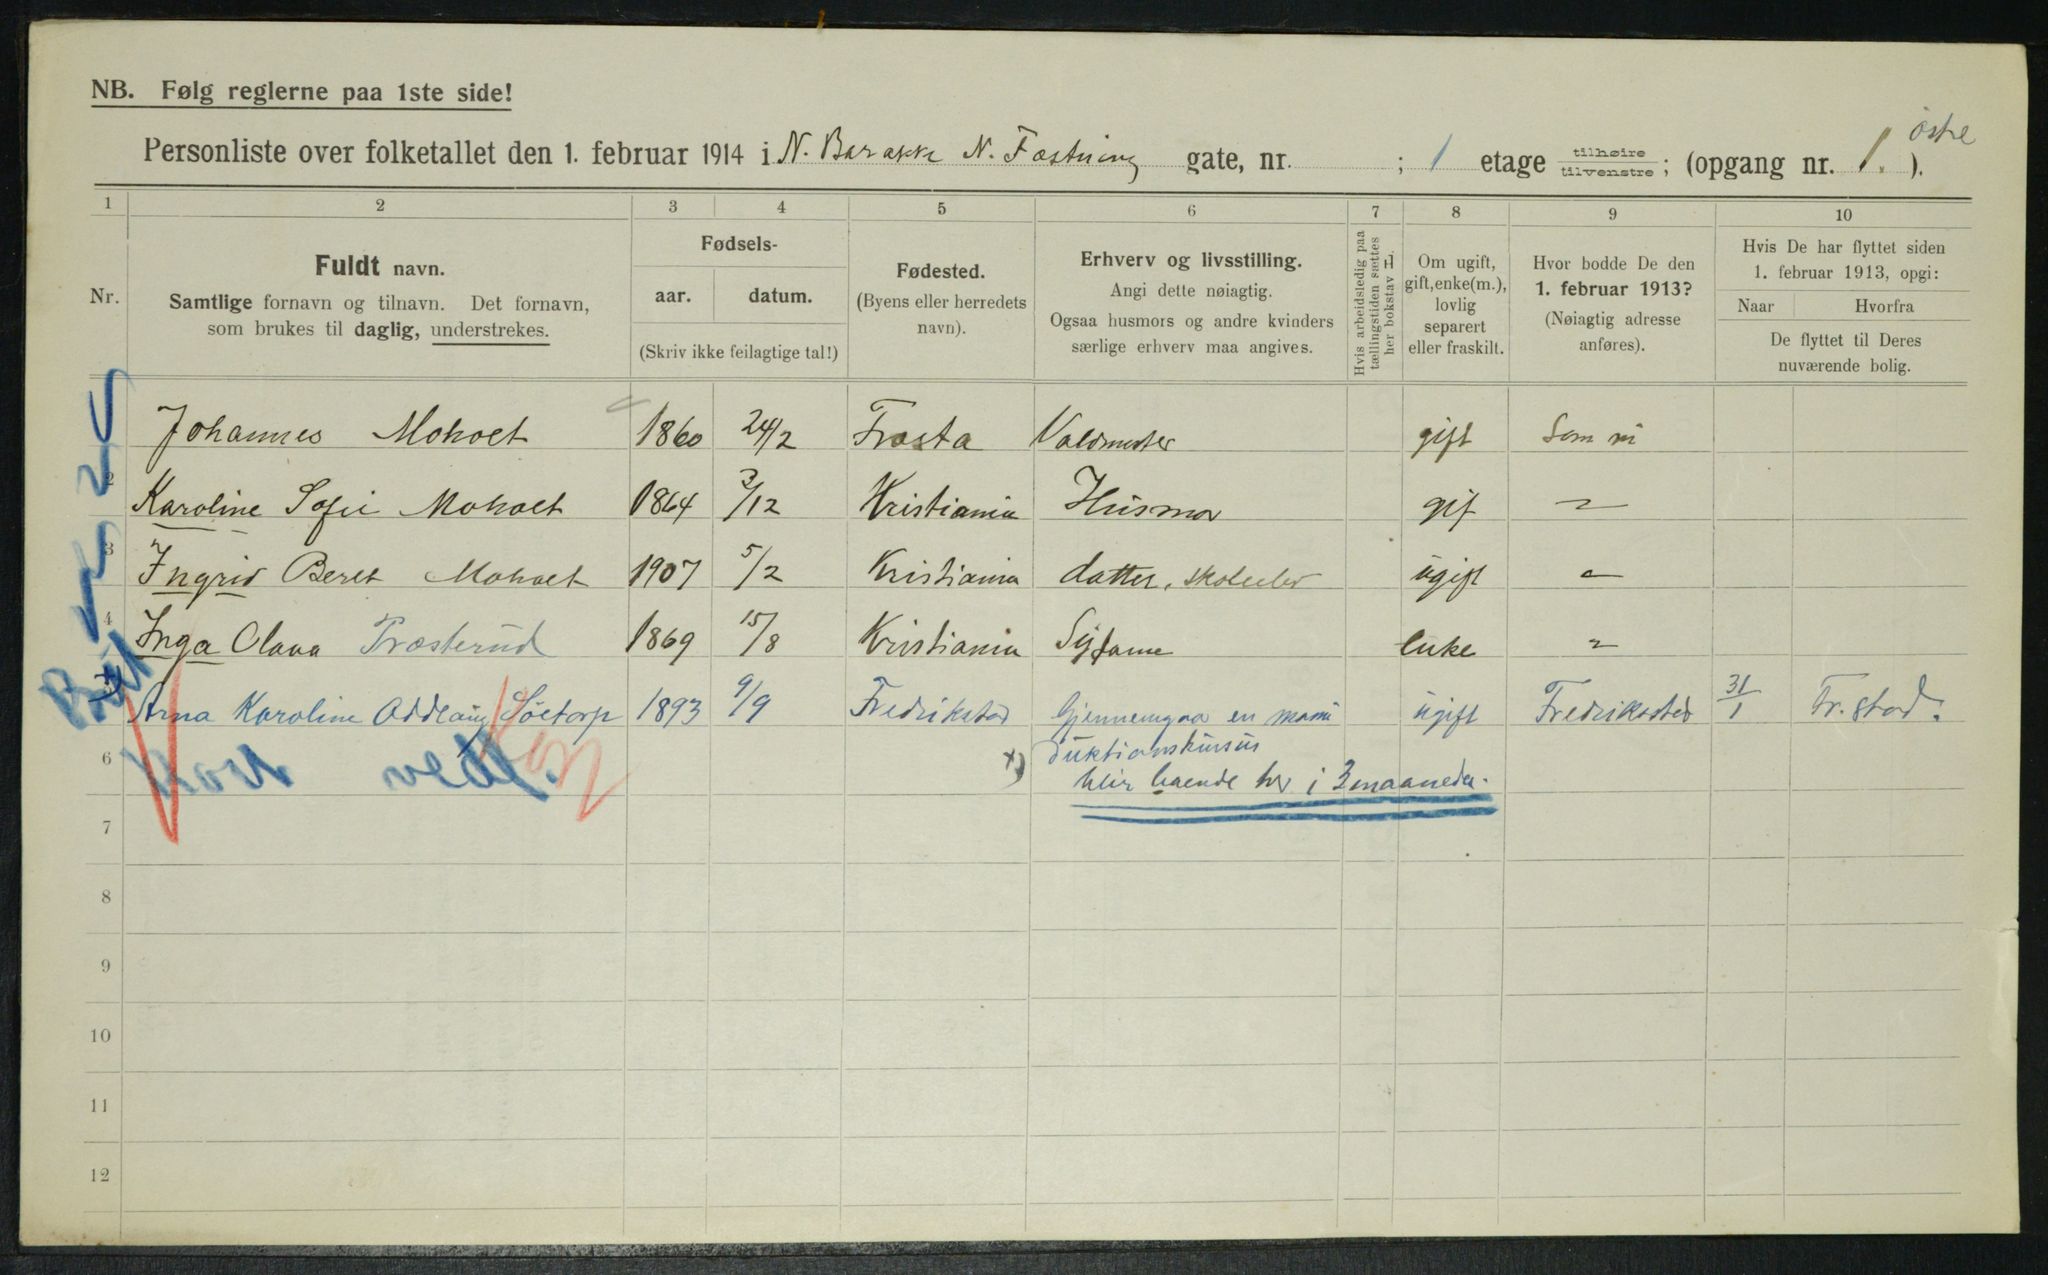 NB. Følg reglerne paa 1ste side!
østre
Personliste over folketallet den 1. februar 1914 i N. Barakke N. Fæstning gate, nr. ; 1 etage tilhøire tilvenstre; (opgang nr. 1. ).
1 2 3 4 5 6 7 8 9 10
Nr.
Fuldt navn.
Samtlige fornavn og tilnavn. Det fornavn,
som brukes til daglig, understrekes.
Fødsels-
aar. datum.
(Skriv ikke feilagtige tal!)
Fødested.
(Byens eller herredets
navn).
Erhverv og livsstilling.
Angi dette nøiagtig.
Ogsaa husmors og andre kvinders
særlige erhverv maa angives.
Hvis arbeidsledig paa
tællingstiden sættes
her bokstav L.
Om ugift,
gift, enke(m.),
lovlig
separert
eller fraskilt.
Hvor bodde De den
1. februar 1913?
(Nøiagtig adresse
anføres).
Hvis De har flyttet siden
1. februar 1913, opgi:
Naar Hvorfra
De flyttet til Deres
nuværende bolig.
Johannes Moholt 1860 24/2 Frosta Voldmester gift Som nu
2 Karoline Sofie Moholt 1864 3/12 Kristiania Husmor gif "
3 Ingrid Beret Moholt 1907 5/2 Kristiania datter, skoleelev ugift "
4 Inga Olava Præsterud 1869 15/8 Kristiania Sydame enke "
Arna Karoline Oddlaug Sletorp 1893 9/9 Fredrikstad Gjennemgaa en manu ugift Fredrikstad 31/1 Fr.stad.
6 x) duktionskursus
blir boende her i 3 maaneder.
Kort vedl.
7
8
9
10
11
12